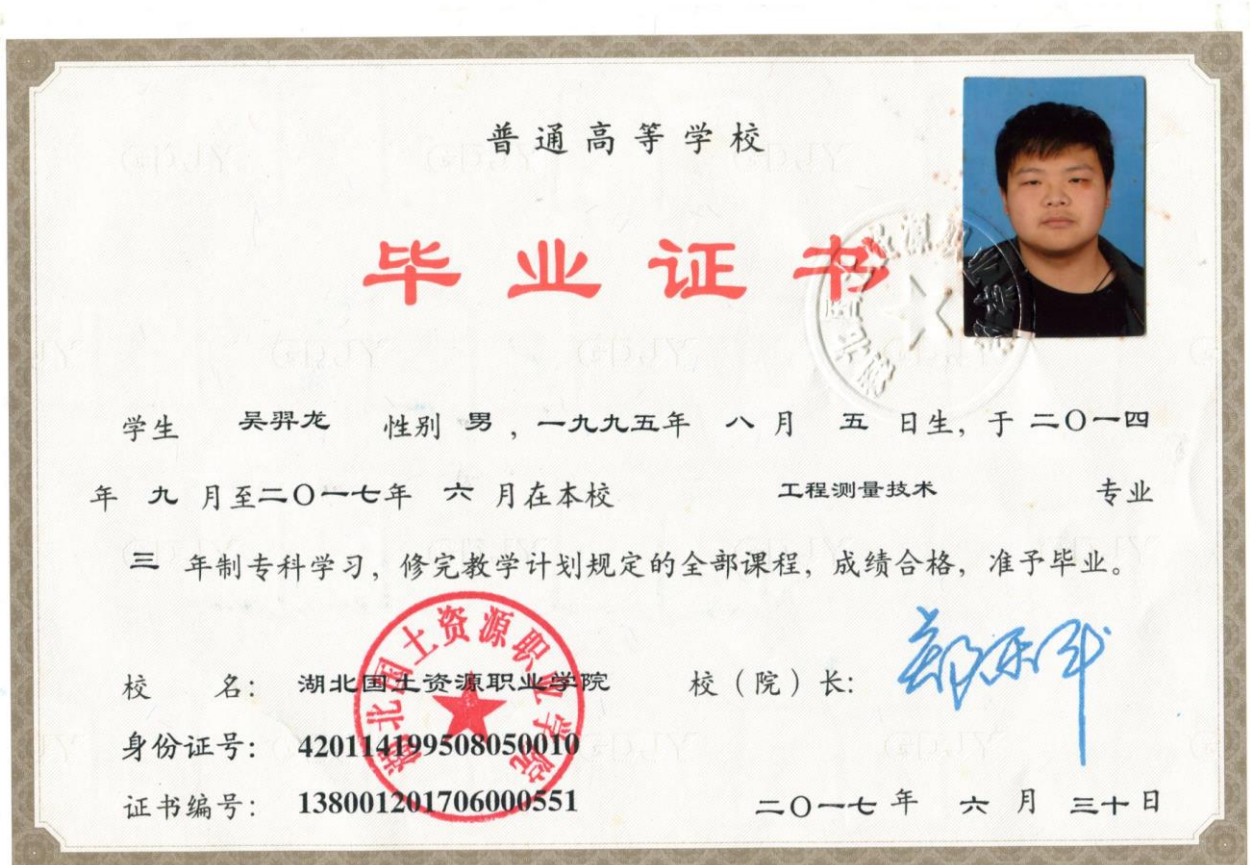 普通高等学校
毕业证书
学生 吴羿龙 性别 男 ，一九九五年 八 月 五 日生，于 二〇一四
年 九 月至二〇一七年 六 月在本校 工程测量技术 专业
三 年制专科学习，修完教学计划规定的全部课程，成绩合格，准予毕业。
校 名： 湖北国土资源职业学院 校（院）长：
身份证号： 420114199508050010
证书编号： 138001201706000551
二〇一七 年 六 月 三十 日
湖北国土资源职业学院